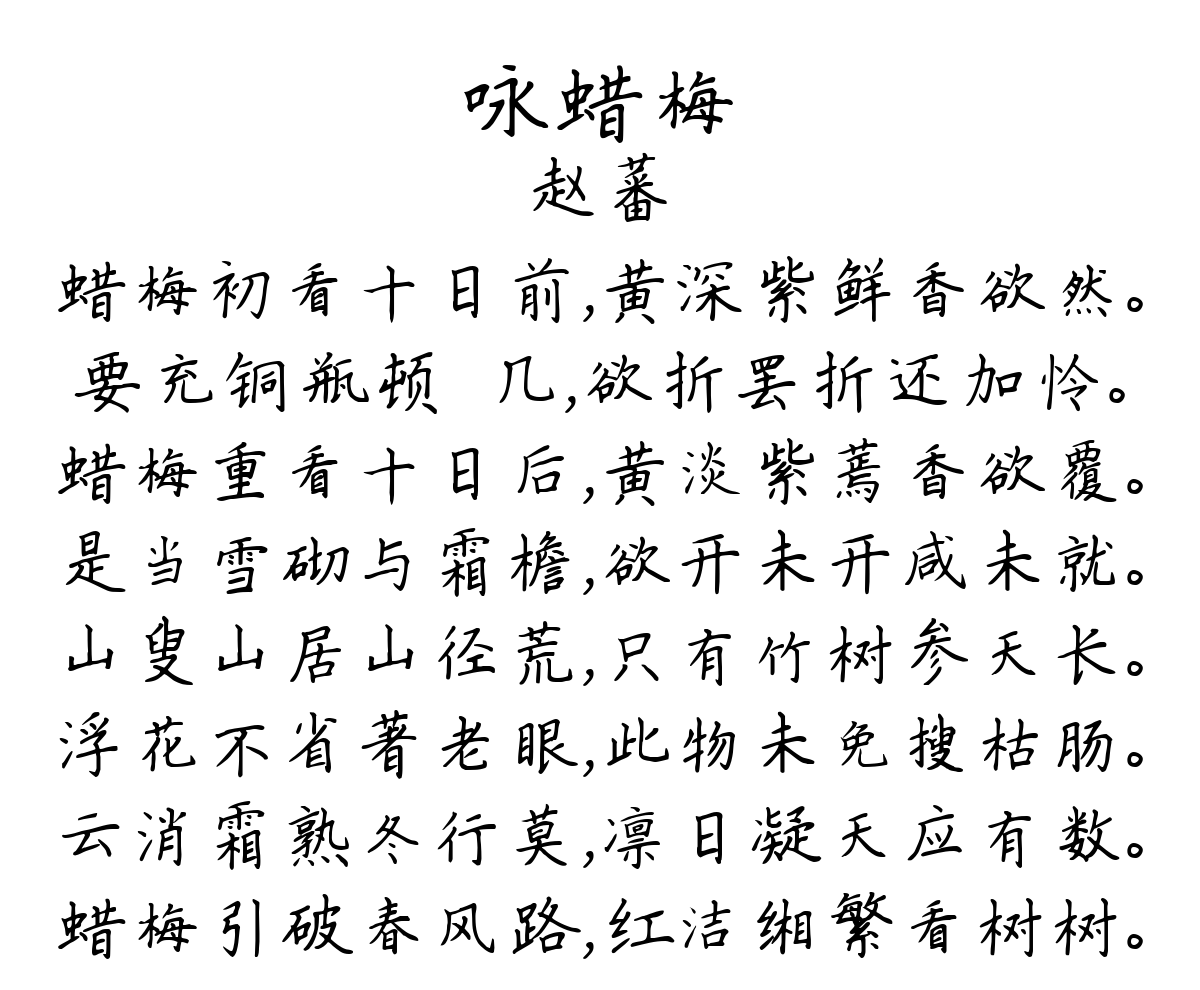 咏蜡梅
赵蕃
蜡梅初看十日前,黄深紫鲜香欲然。
要充铜瓶顿 几,欲折罢折还加怜。
蜡梅重看十日后,黄淡紫蔫香欲覆。
是当雪砌与霜檐,欲开未开咸未就。
山叟山居山径荒,只有竹树参天长。
浮花不省著老眼,此物未免搜枯肠。
云消霜熟冬行莫,凛日凝天应有数。
蜡梅引破春风路,红洁缃繁看树树。